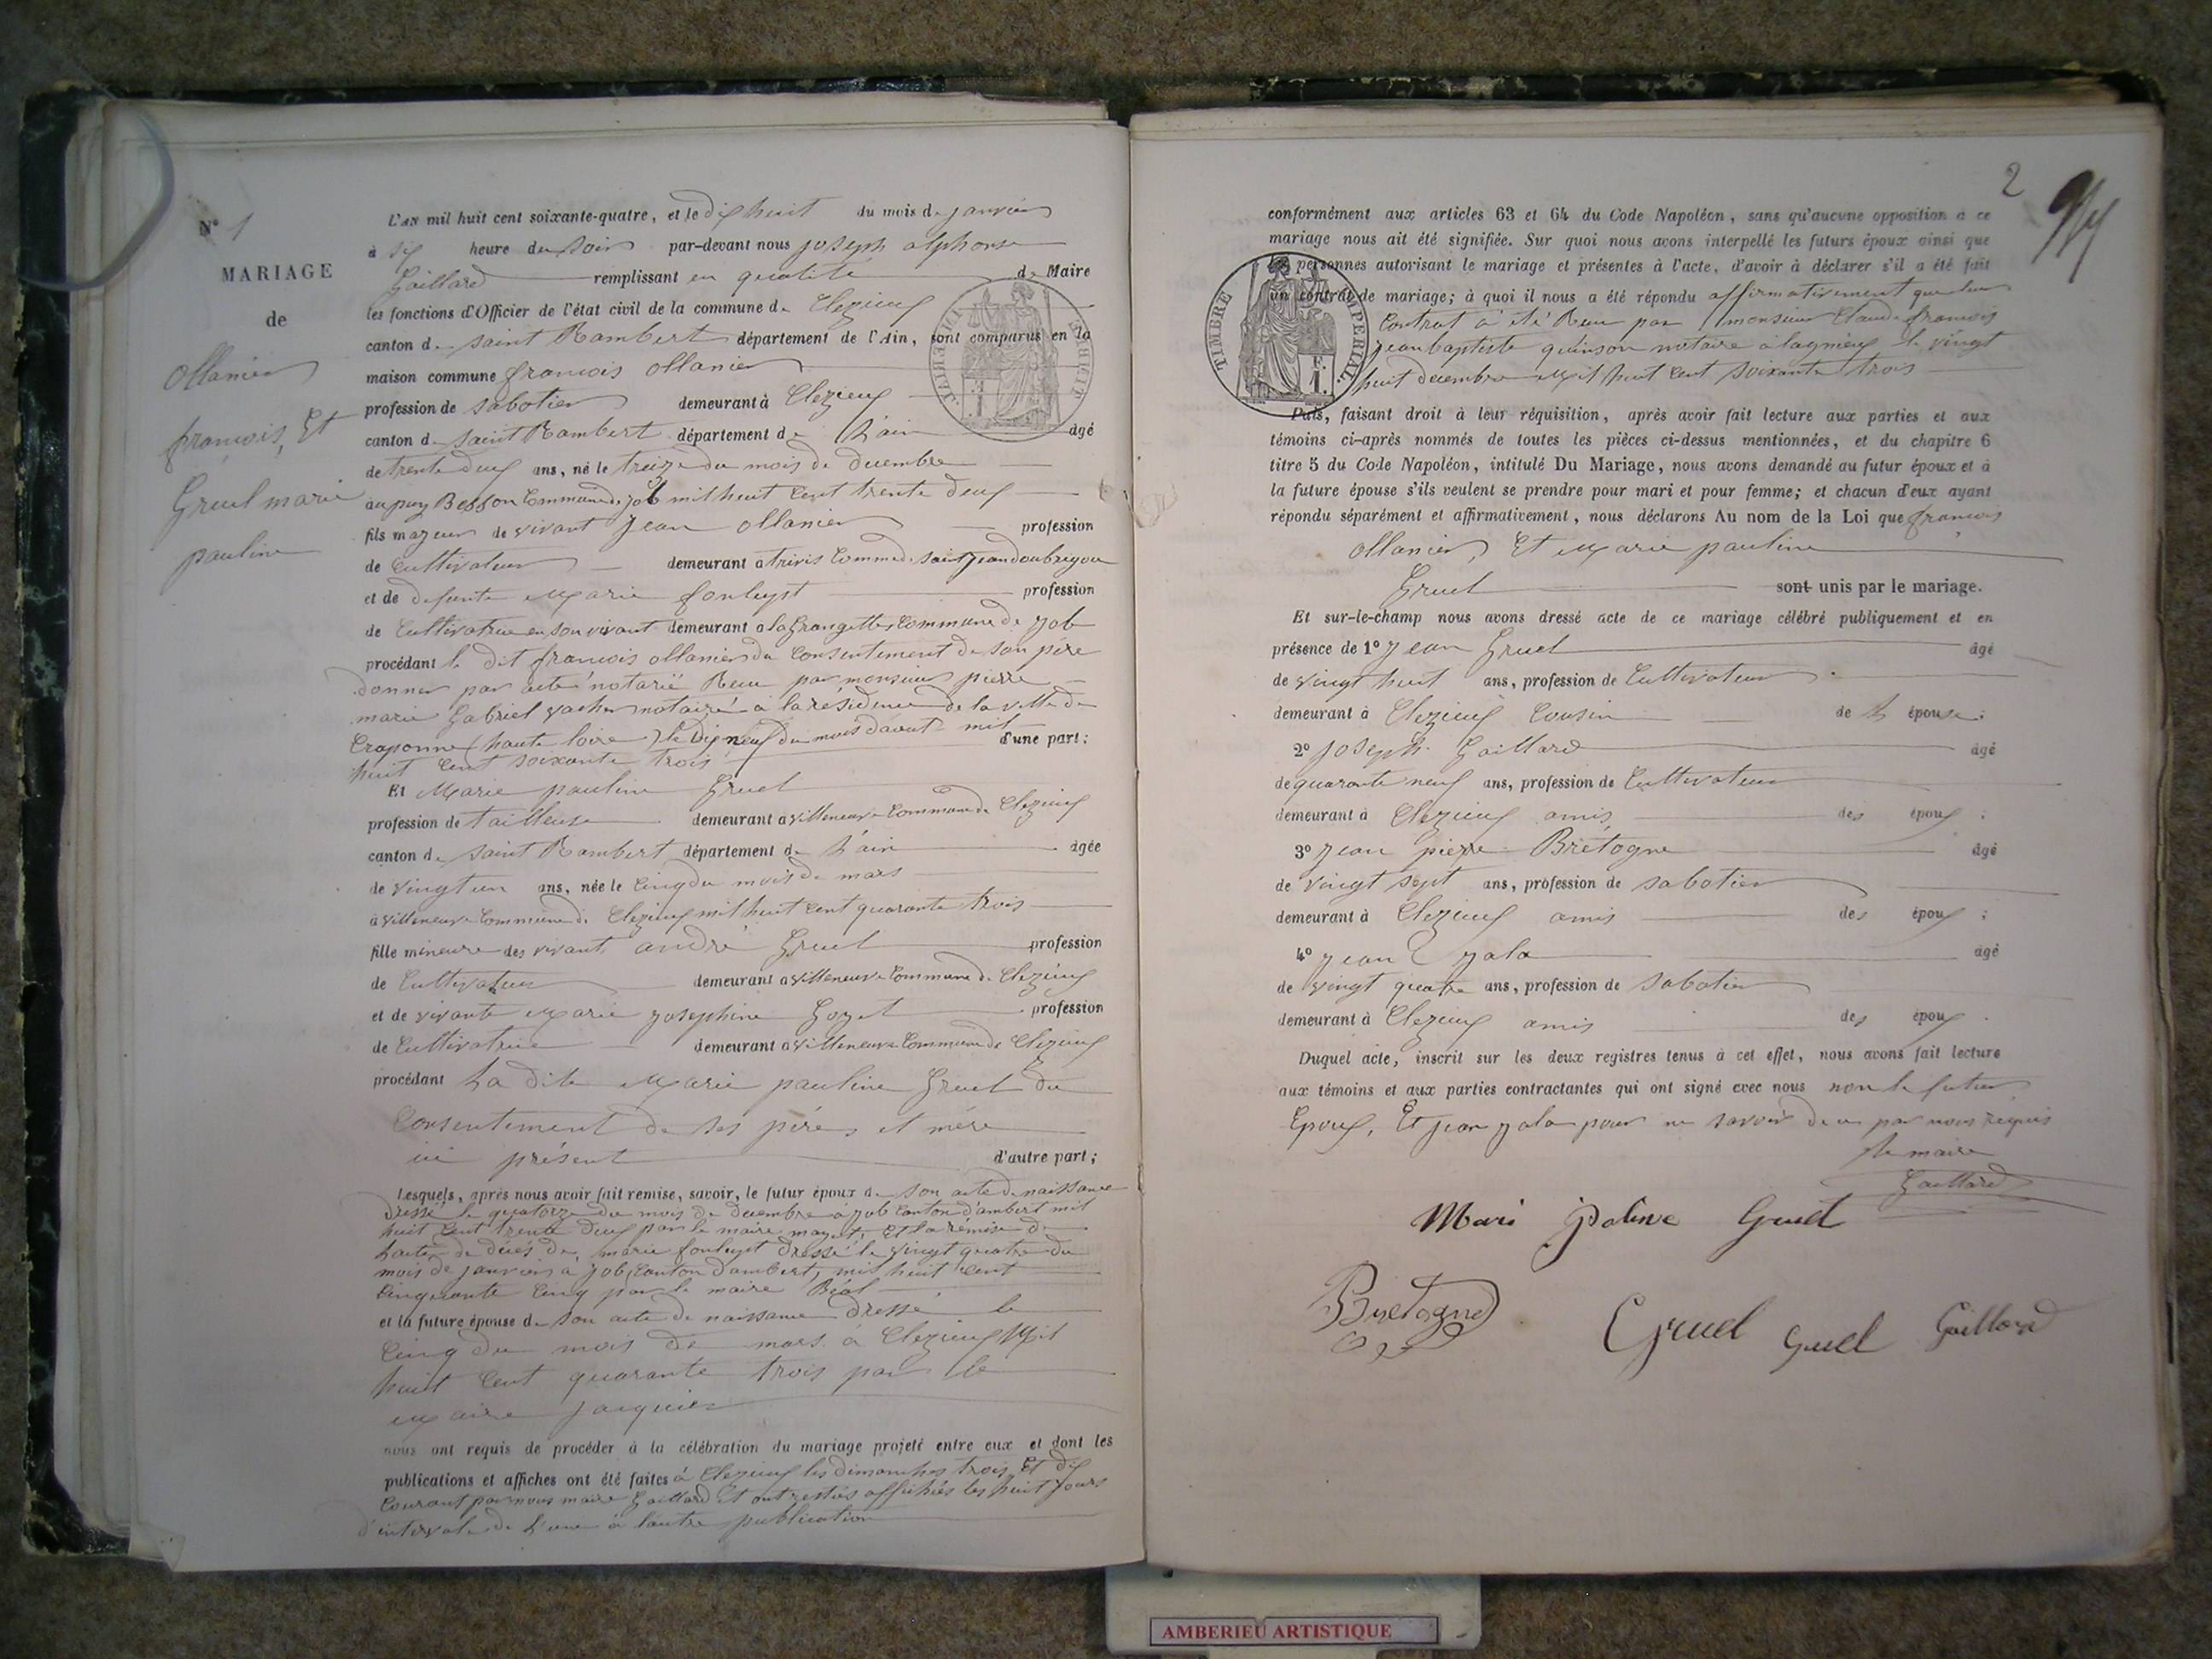 N° 1
MARIAGE
de
Ollanier
françois, Et
Gruel marie
pauline
L'AN mil huit cent soixante-quatre, et le dix huit du mois de janvier
à six heure du soir par-devant nous joseph alphonse
Gaillard remplissant en qualité de Maire
les fonctions d'Officier de l'état civil de la commune de Clezieux
canton de saint Rambert département de l'Ain, sont comparus en la
maison commune françois ollanier
profession de sabotier demeurant à Clezieux
canton de saint Rambert département de L'ain âgé
de trente deux ans, né le treize du mois de decembre
au puy Besson Commune de job mil huit Cent trente deux
fils majeur de vivant jean ollanier profession
de Cultivateur demeurant à trivis Comme de saint jean doubrigou
et de defunte Marie fouleyst profession
de Cultivatrice en son vivant demeurant a la Grangette, Commune de job
procédant le dit françois ollanier du Consentement de son père
donner par acte notarié Reçu par monsieur pierre
marie Gabriel vacher notaire à la résidence de la ville de
Craponne (haute loire) le dix neuf du mois d'avout mil d'une part;
huit Cent soixante trois
Et Marie pauline Gruel
profession de tailleuse demeurant à villeneuve Commune de Clezieux
canton de saint Rambert département de L'ain âgée
de vingt un ans, née le Cinq du mois de mars
à villeneuve Commune de Clezieux mil huit Cent quarante trois
fille mineure des vivant andré Gruel profession
de Cultivateur demeurant a villeneuve Commune de Clezieux
et de vivante Marie josephine Goyet profession
de Cultivatrice demeurant a villeneuve Commune de Clezieux
procédant La dite Marie pauline Gruel du
Consentement de ses père et mère
ici présent d'autre part;
Lesquels, après nous avoir fait remise, savoir, le futur époux de son acte de naissance
dressé le quatorze du mois de decembre a job Canton d'ambert mil
huit Cent trente deux par le maire mayet, Et la rémise de
L'acte de dècés de marie fouleyst dressé le vingt quatre du
mois de janvier à job, Canton d'ambert, mil huit Cent
Cinquante Cinq par le maire Béal
et la future épouse de son acte de naissance dressé le
Cinq du mois de mars à Clezieux Mil
huit Cent quarante trois par le
Maire jacquier
nous ont requis de procéder à la célébration du mariage projeté entre eux et dont les
publications et affiches ont été faites à Clezieux les dimanches trois Et dix
Courant par nous maire Gaillard Et ont restiés affichés les huit jours
d'intervale de L'une à l'autre publication
2
conformément aux articles 63 et 64 du Code Napoléon, sans qu'aucune opposition à ce
mariage nous ait été signifiée. Sur quoi nous avons interpellé les futurs époux ainsi que
les personnes autorisant le mariage et présentes à l'acte, d'avoir à déclarer s'il a été fait
un contrat de mariage; à quoi il nous a été répondu affirmativement que leur
Contrat à été Reçu par monsieur Claude françois
jean baptiste quinson notaire à lagnieux le vingt
huit decembre Mil huit Cent soixante trois
TIMBRE IMPERIAL
F.
1.
Puis, faisant droit à leur réquisition, après avoir fait lecture aux parties et aux
témoins ci-après nommés de toutes les pièces ci-dessus mentionnées, et du chapitre 6
titre 5 du Code Napoléon, intitulé Du Mariage, nous avons demandé au futur époux et à
la future épouse s'ils veulent se prendre pour mari et pour femme; et chacun d'eux ayant
répondu séparément et affirmativement, nous déclarons Au nom de la Loi que françois
ollanier, Et Marie pauline
Gruel sont unis par le mariage.
Et sur-le-champ nous avons dressé acte de ce mariage célébré publiquement et en
présence de 1° jean Gruel âgé
de vingt huit ans, profession de Cultivateur
demeurant à Clezieux Cousin de L épouse;
2° joseph Gaillard âgé
de quarante neuf ans, profession de Cultivateur
demeurant à Clezieux amis des époux;
3° jean pierre Brétogne âgé
de vingt sept ans, profession de sabotier
demeurant à Clezieux amis des époux;
4° jean yala âgé
de vingt quatre ans, profession de sabotier
demeurant à Clezieux amis des époux.
Duquel acte, inscrit sur les deux registres tenus à cet effet, nous avons fait lecture
aux témoins et aux parties contractantes qui ont signé avec nous non le futur
Epoux, Et jean yala pour ne savoir de ce par nous réquis
le maire
Gaillard
Mari poline Gruel
Bretogne
Gruel Gruel Gaillard
AMBERIEU ARTISTIQUE